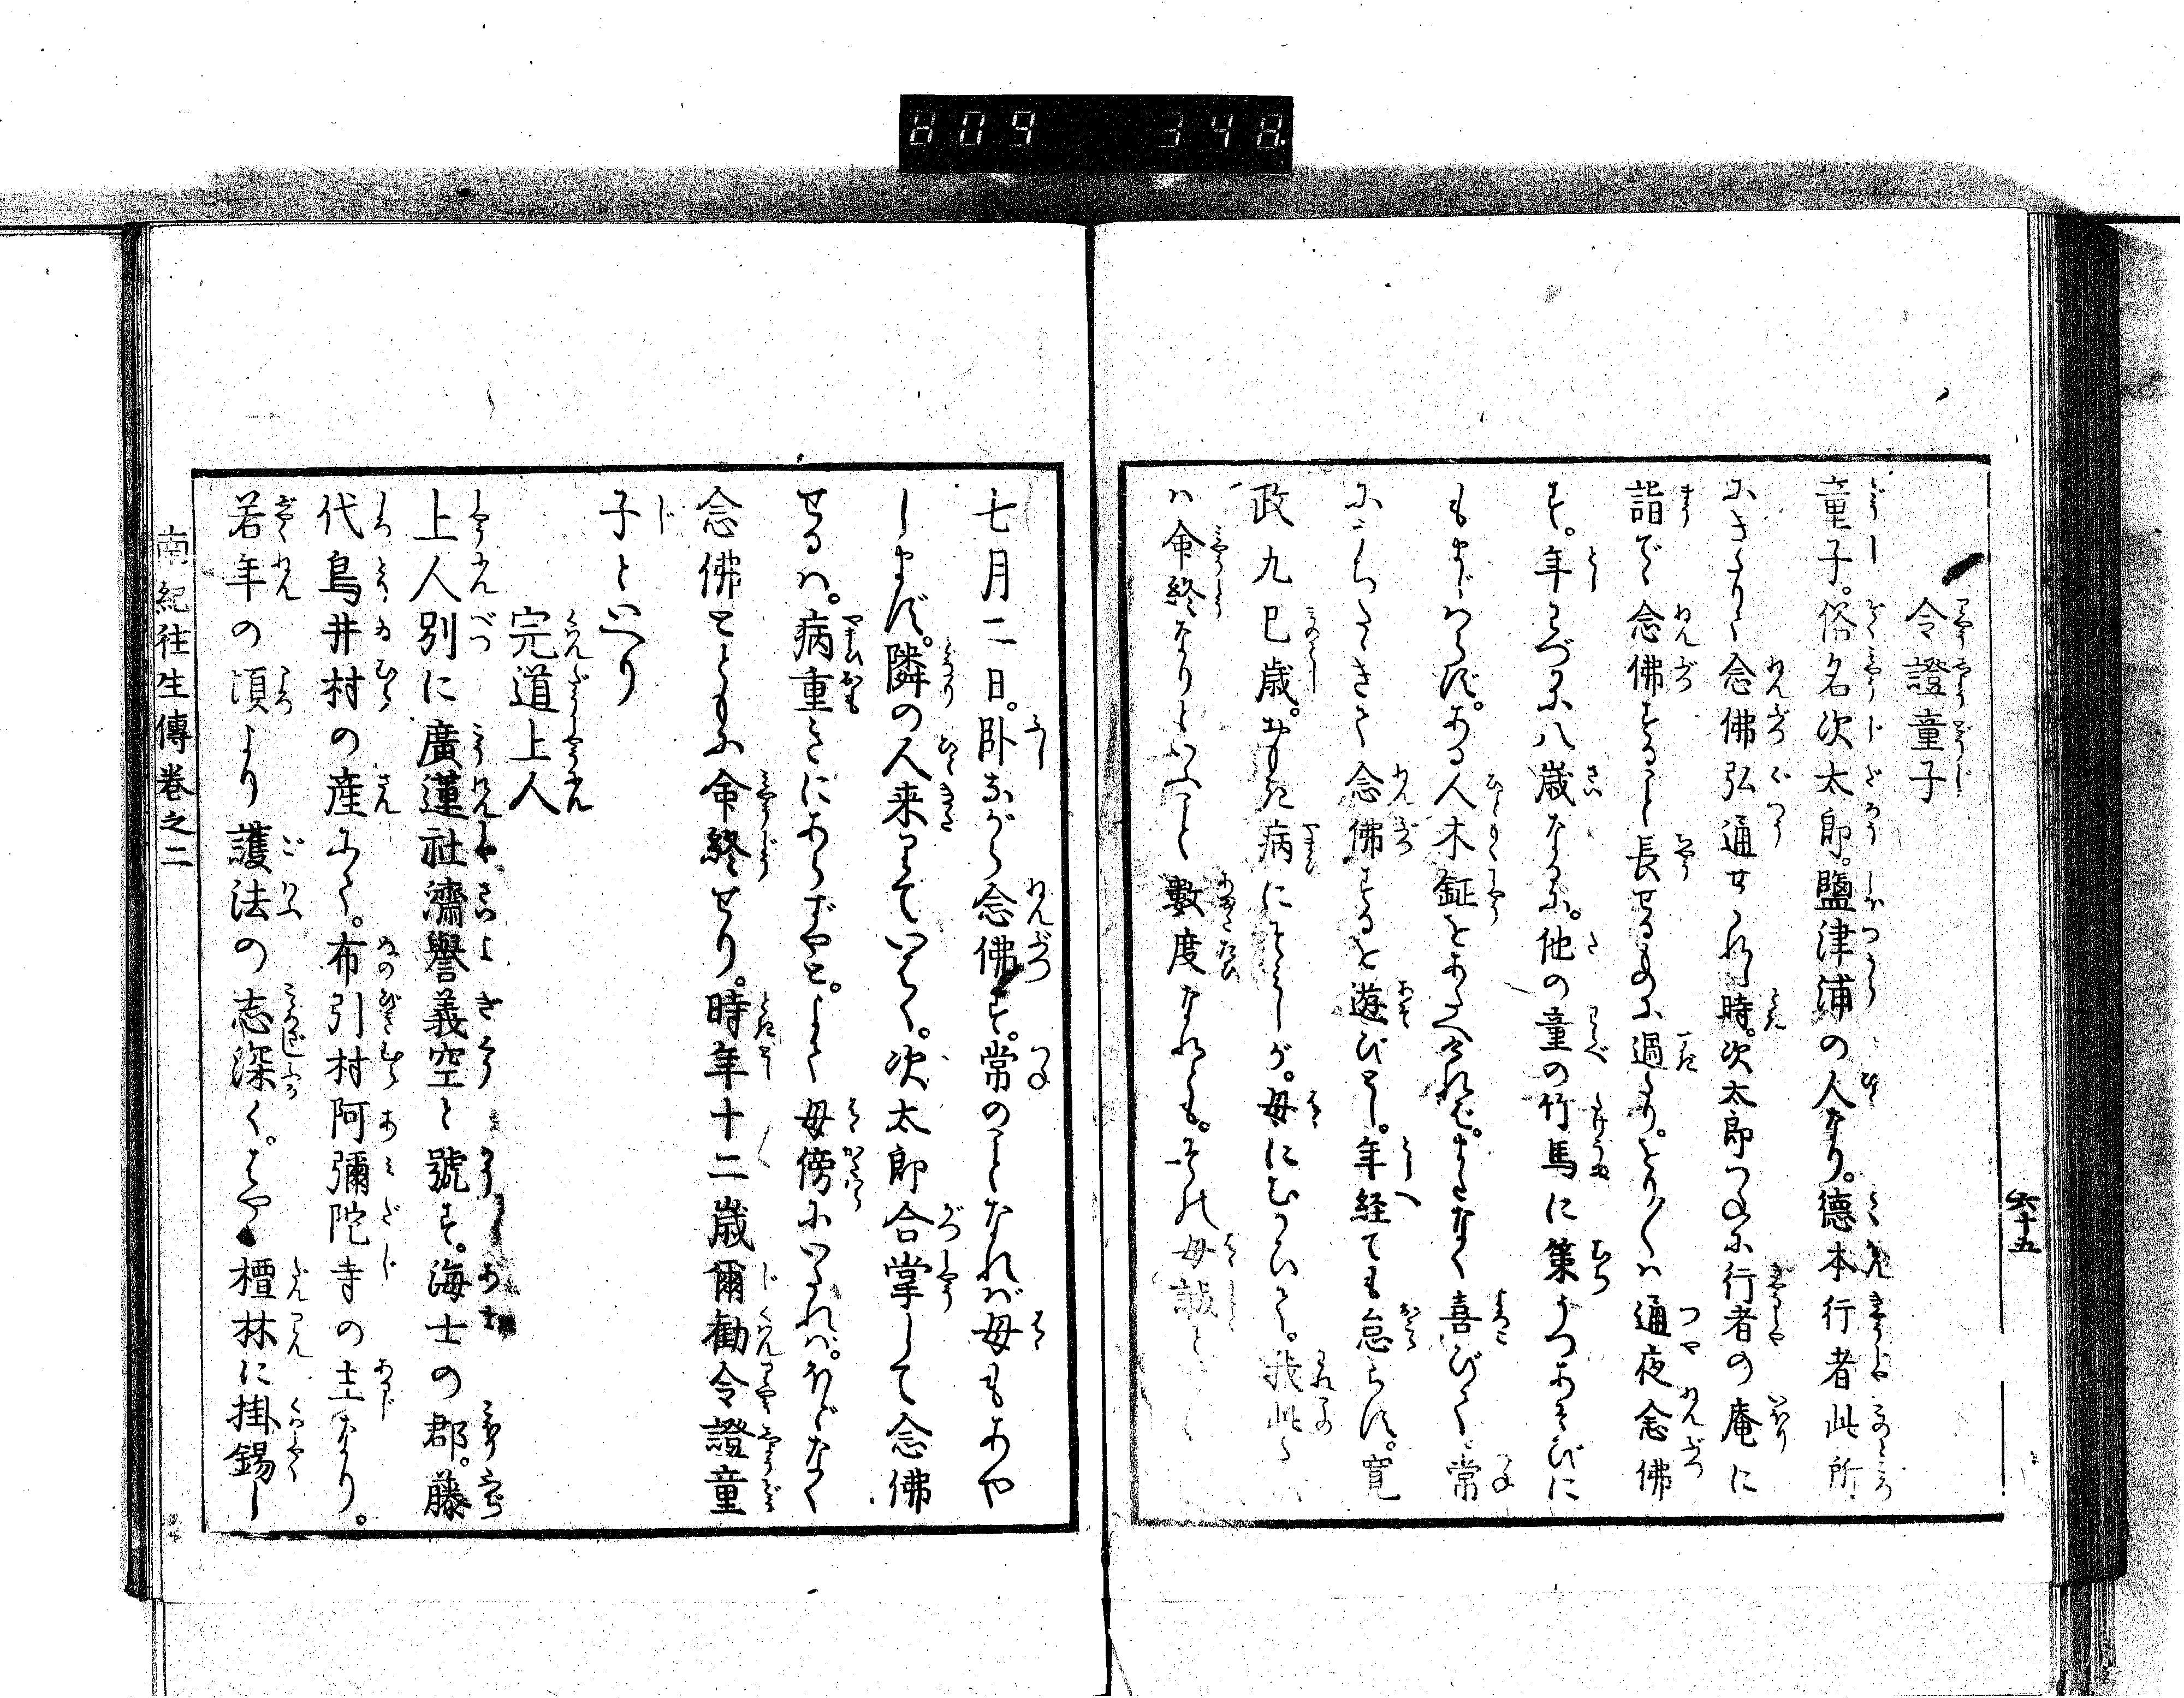 令證童子
童子。俗名次太郎。鹽津浦の人なり。德本行者此所
にきたりて念佛弘通せられし時。次太郎つねに行者の庵に
詣で念佛すること長せるものに過たり。をり〳〵ハ通夜念佛
す。年わづかに八歳なるに。他の童の竹馬に策うつあそびに
もまじハらず。ある人木鉦をあたへければ。まことなく喜びて常
にこゝちたゝきて念佛するを遊びとし。年経ても怠らず。寛
政九巳歳。おもき病にふしゝが。母にむかひて。我此
ハ命終なりといふこと數度なれども。それ母誠と
七月二日。卧ながら念佛す。常のことなれば母もあや
しまず。隣の人来りていはく。次太郎合掌して念佛
せるハ。病重きにあらずやと。よく母傍にいたれバ。ほどなく
念佛とともに命終せり。時年十二歳爾勸令證童
子といへり
完道上人
上人別に廣蓮社濟譽義空と號す。海士の郡。藤
代鳥井村の産にて。布引村阿彌陀寺の主なり。
若年の頃より護法の志深く。はや檀林に掛錫し
南紀往生傳巻之二
六十五
809 348